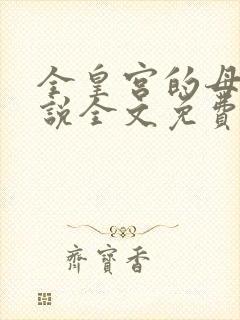 全皇宫的母
說全文免費
齊寶香